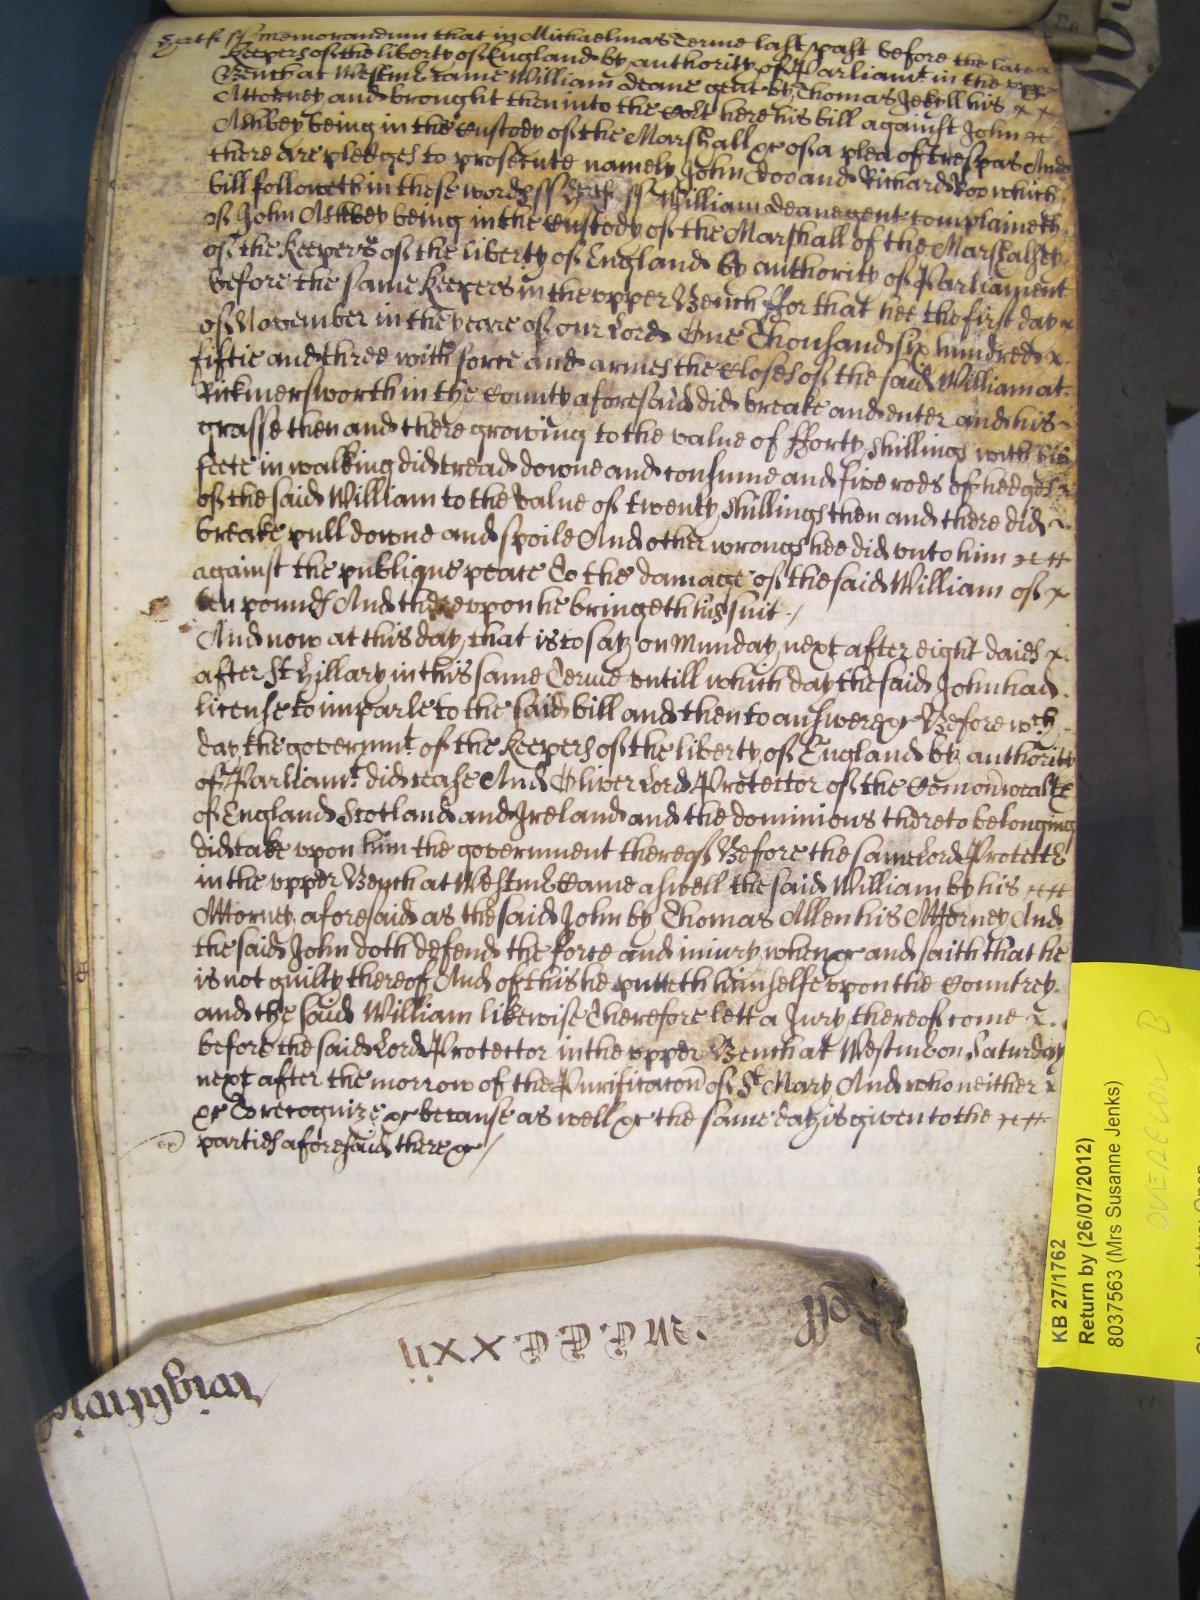 Hertf ss Memorandum that in Michaelmas Terme last past before the late
Keepers of the liberty of England by authority of Parliamt in the upp
Bench at Westmr came William Deane gent by Thomas Jekyll his
Attorney and brought then into the Cort here his bill against John
Ashbey being in the custody of the Marshall &c of a plea of trespas And
there are pledges to prosecute namely John Doo and Richard Roo which
bill followeth in these words ss Hertf ss William Deane gent complaineth
of John Ashbey being in the custody of the Marshall of the Marshalsey
of the Keepers of the liberty of England by authority of Parliament
before the same Keepers in the upper Bench ffor that hee the first day
of November in the yeare of our Lord One Thousand six hundred
fiftie and three with force and armes the closes of the said William at
Rickmersworth in the County aforesaid did breake and enter and his
grasse then and there growing to the value of fforty shillings with his
feete in walking did tread downe and consume and five rods of hedges
of the said William to the value of twenty shillings then and there did
breake pull downe and spoile And other wrongs hee did unto him
against the publique peace To the damage of the said William of
ten pounds And thereupon he bringeth his suit
And now at this day, that is to say on Munday next after eight daies
after St Hillary in this same Terme untill which day the said John had
license to imparle to the said bill and then to answere &c Before wch
day the governmt of the Keepers of the liberty of England by authority
of Parliamt did cease And Oliver Lord Protector of the Comonwealth
of England Scotland and Ireland and the dominions thereto belonging
did take upon him the government thereof Before the same Lord Protector
in the upper Bench at Westmr came aswell the said William by his
Attorney aforesaid as the said John by Thomas Allen his Attorney And
the said John doth defend the force and injury when &c and saith that he
is not guilty thereof And of this he putteth himselfe upon the Countrey
and the said William likewise Therefore lett a Jury thereof come
before the said Lord Protector in the upper Bench at Westmr on Saturday
next after the morrow of the Purificacon of St Mary And who neither
&c To recognize &c because as well &c the same day is given to the
parties aforesaid there &c
KB 27/1762
Return by (26/07/2012)
8037563 (Mrs Susanne Jenks)
OVERSEON B
Roll
M.C.C.C.xxii